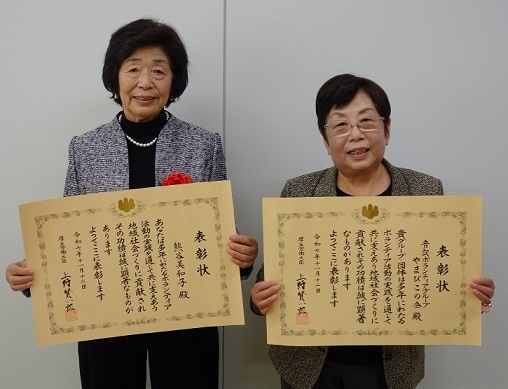 表彰状
熊谷美和子 殿
あなたは多年にわたりボランティア
活動の実践を通して共に支えあう
地域社会づくりに貢献され
その功績は誠に顕著なものが
あります
よってここに表彰します
令和七年十一月十二日
厚生労働大臣
上野賢一郎
表彰状
音沢ボランティアグループ
やまびこの会 殿
貴グループ(団体)は多年にわたる
ボランティア活動の実践を通して
共に支えあう地域社会づくりに
貢献されその功績は誠に顕著
なものがあります
よってここに表彰します
令和七年十一月十二日
厚生労働大臣
上野賢一郎